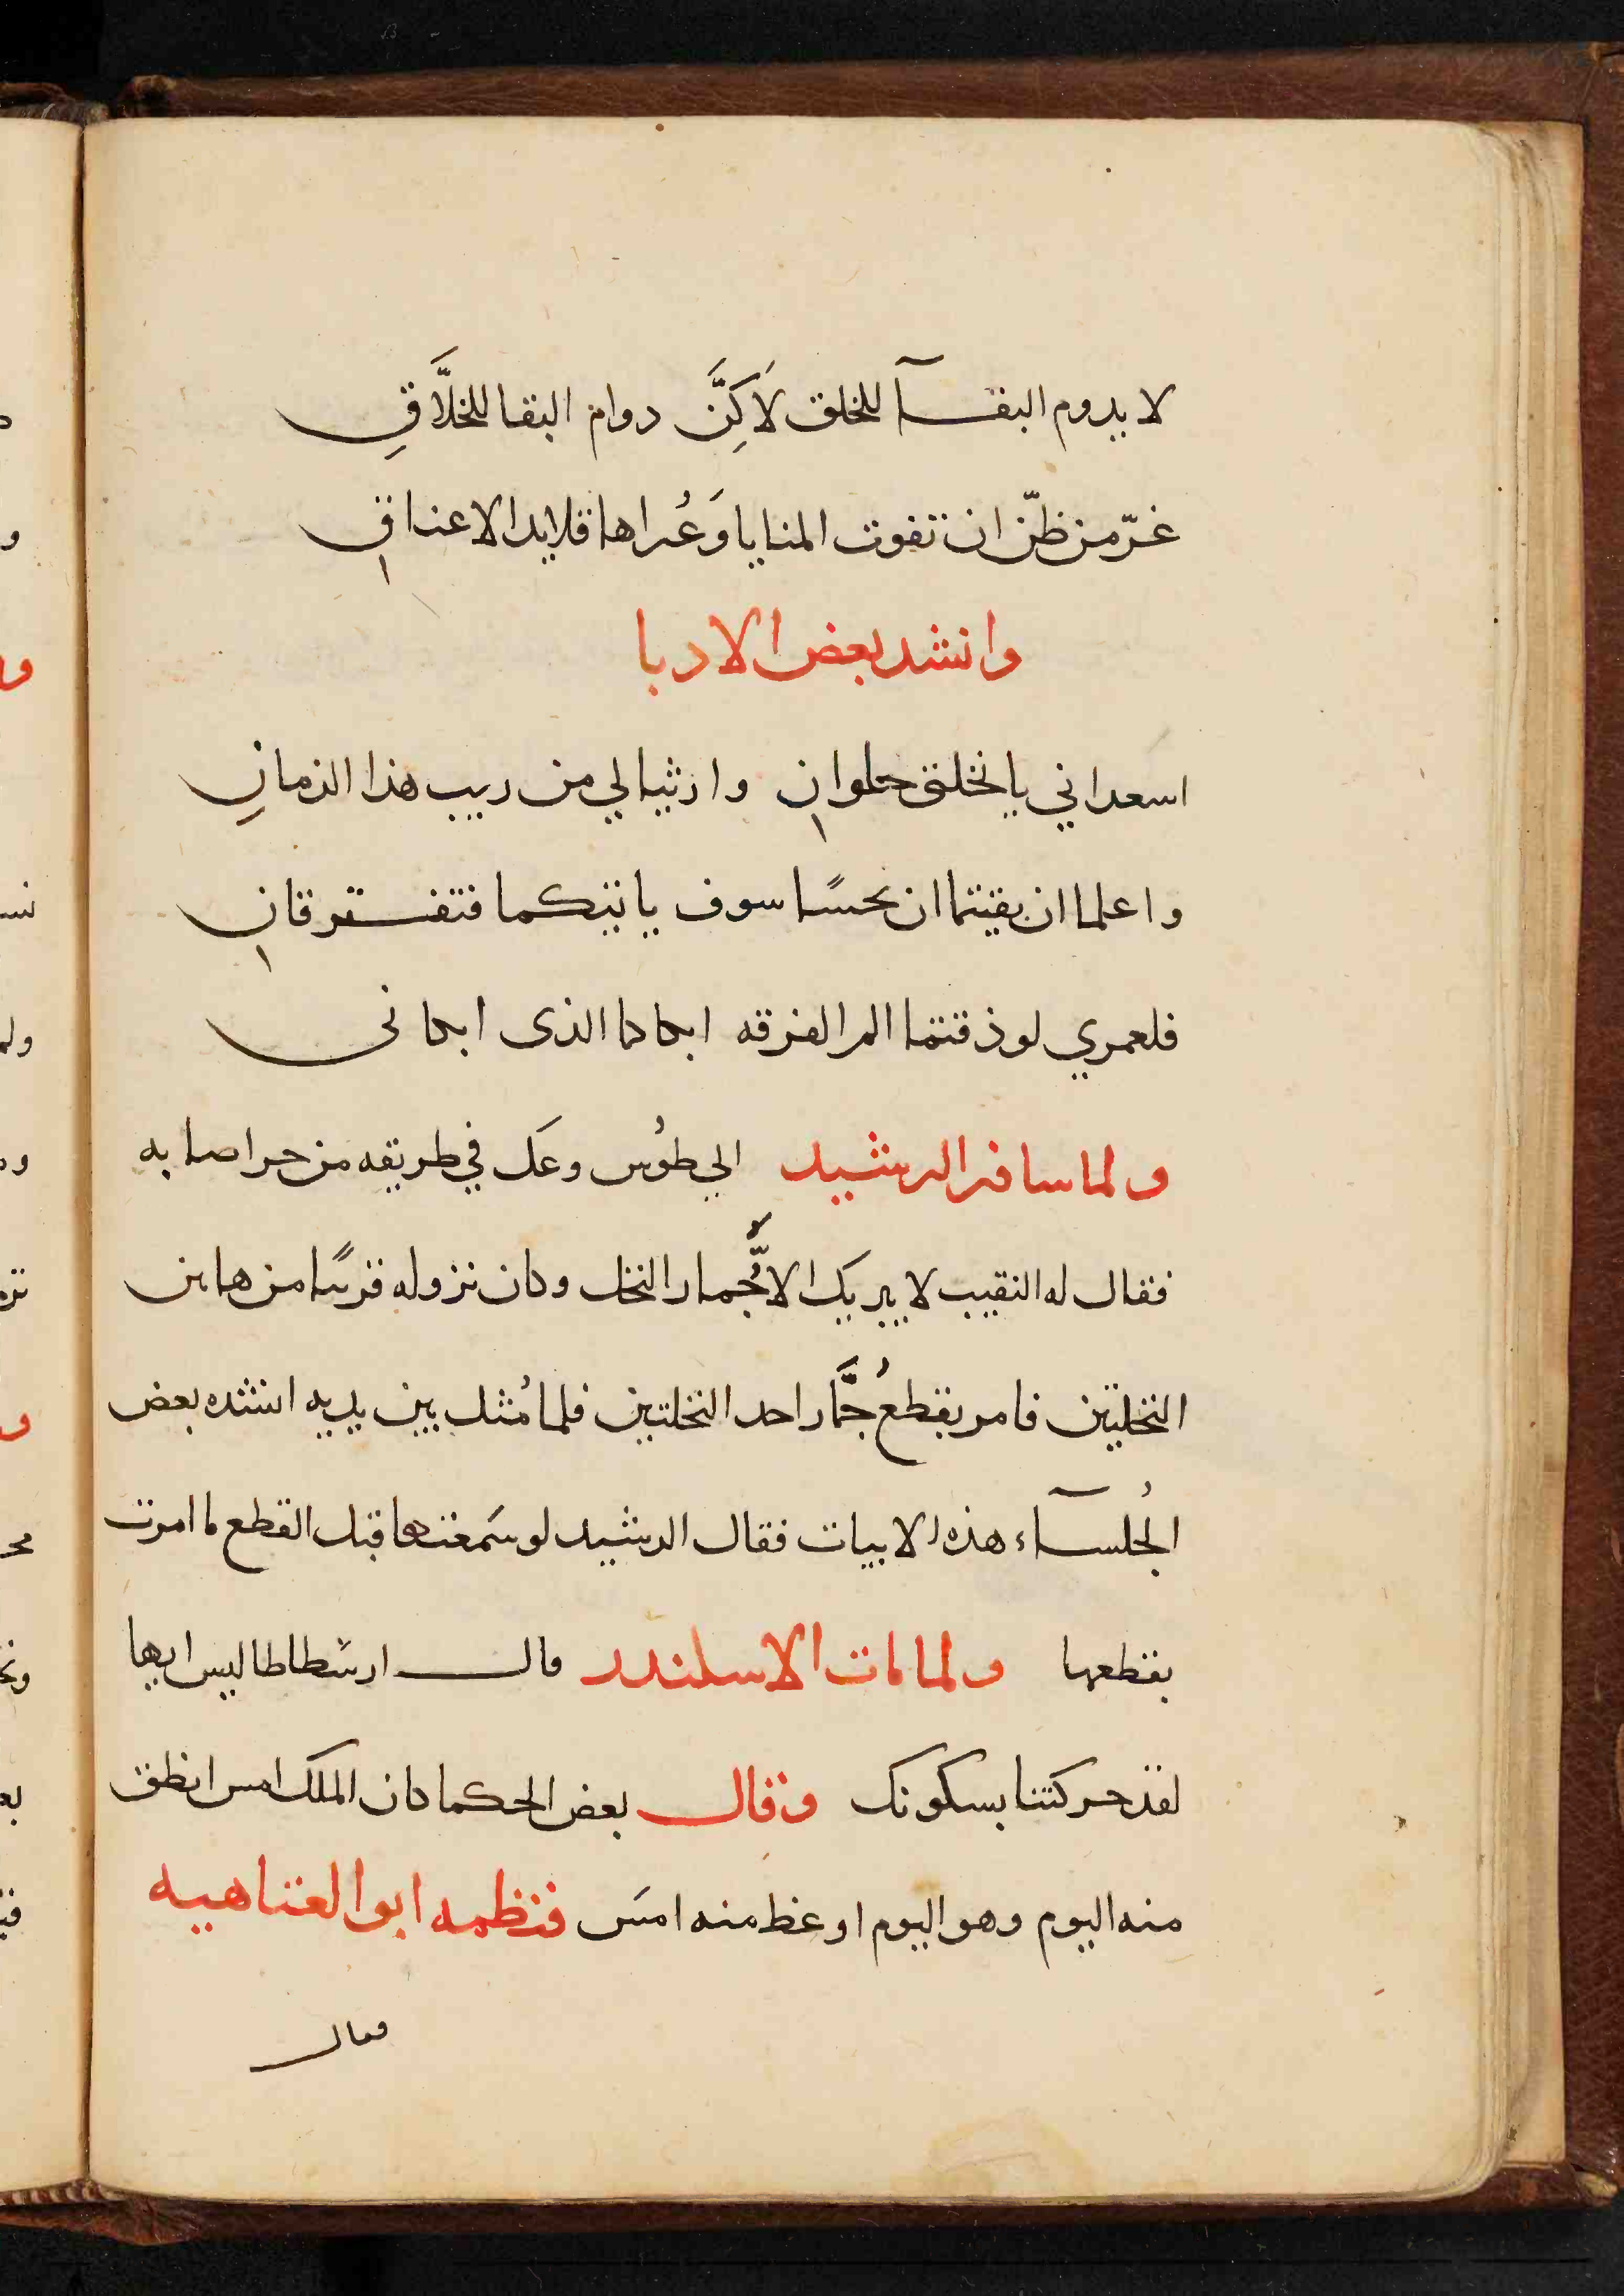 لا يدوم البقآ للخلق لَاكِنَّ دوام البقا للخلَّاقِ
غرّ من ظنّ ان تفوت المنايا وَعُراها قلايد الاعناقِ
وانشد بعض الادبا
اسعداني يا نخلتي حلوانِ وارثيا لي من ريب هذا الزمانِ
واعلما ان بقيتما ان نحسًا سوف ياتيكما فتفترقانِ
فلعمري لو ذقتما الم الفرقه ابكاكما الذى ابكانى
ولما سافر الرشيد الي طوُس وعَك في طريقه من حر اصابه
فقال له النقيب لا يبريك الا جُمَّار النخل وكان نزوله قريبًا من هاتين
النخلتين فامر بقطع جُمَّار احد النخلتين فلما مُثل بين يديه انشده بعض
الجُلسآء هذه الابيات فقال الرشيد لو سَمعتها قبل القطع لما امرت
بقطعها ولما مات الاسكندر قال ارسَطاطاليس ايها
لقد حركتنا بسكونك وقال بعض الحكما كان الملك امس انطق
منه اليوم وهو اليوم اوعظ منه امسَ فنظمه ابو العتاهيه
فقال